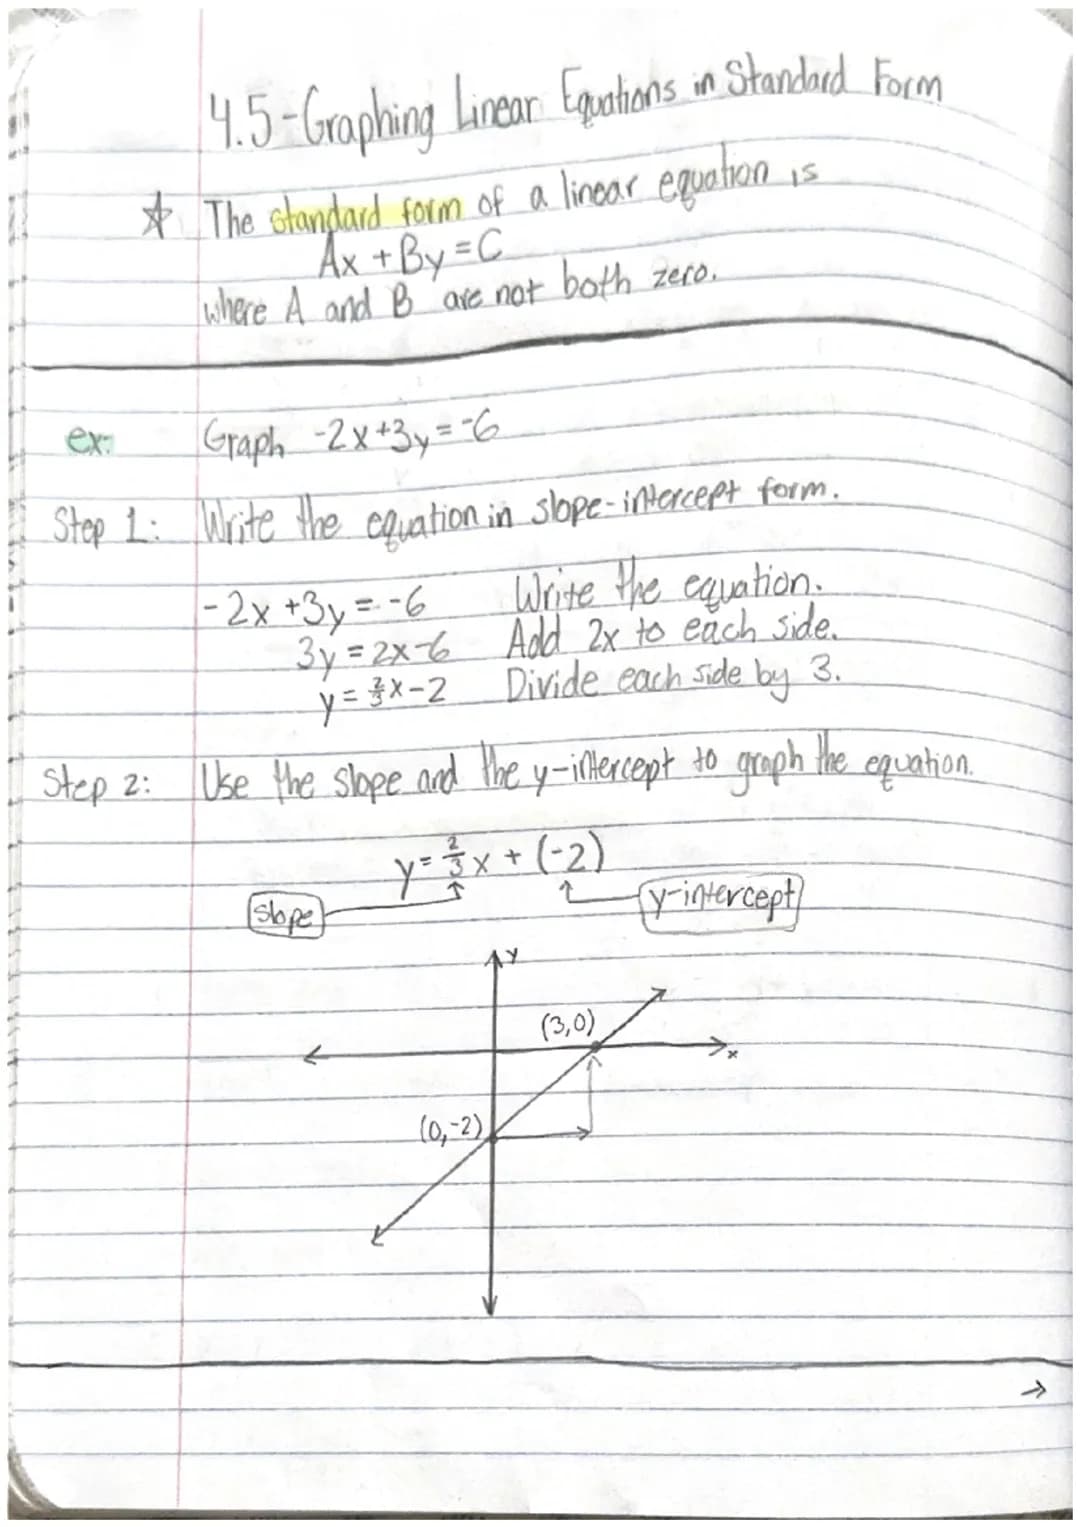 4.5-Graphing Linear Equations in Standard Form
☆ The standard form of a linear equation is
Ax + By = C
where A and B are not both zero.
ex: Graph -2x+3y=-6
Step 1: Write the equation in slope-intercept form.
-2x+3y=-6 Write the equation.
3y=2x-6 Add 2x to each side.
y=2/3x-2 Divide each side by 3.
Step 2: Use the slope and the y-intercept to graph the equation.
y=2/3x+(-2)
slope y-intercept
y
(3,0)
x
(0,-2)
→